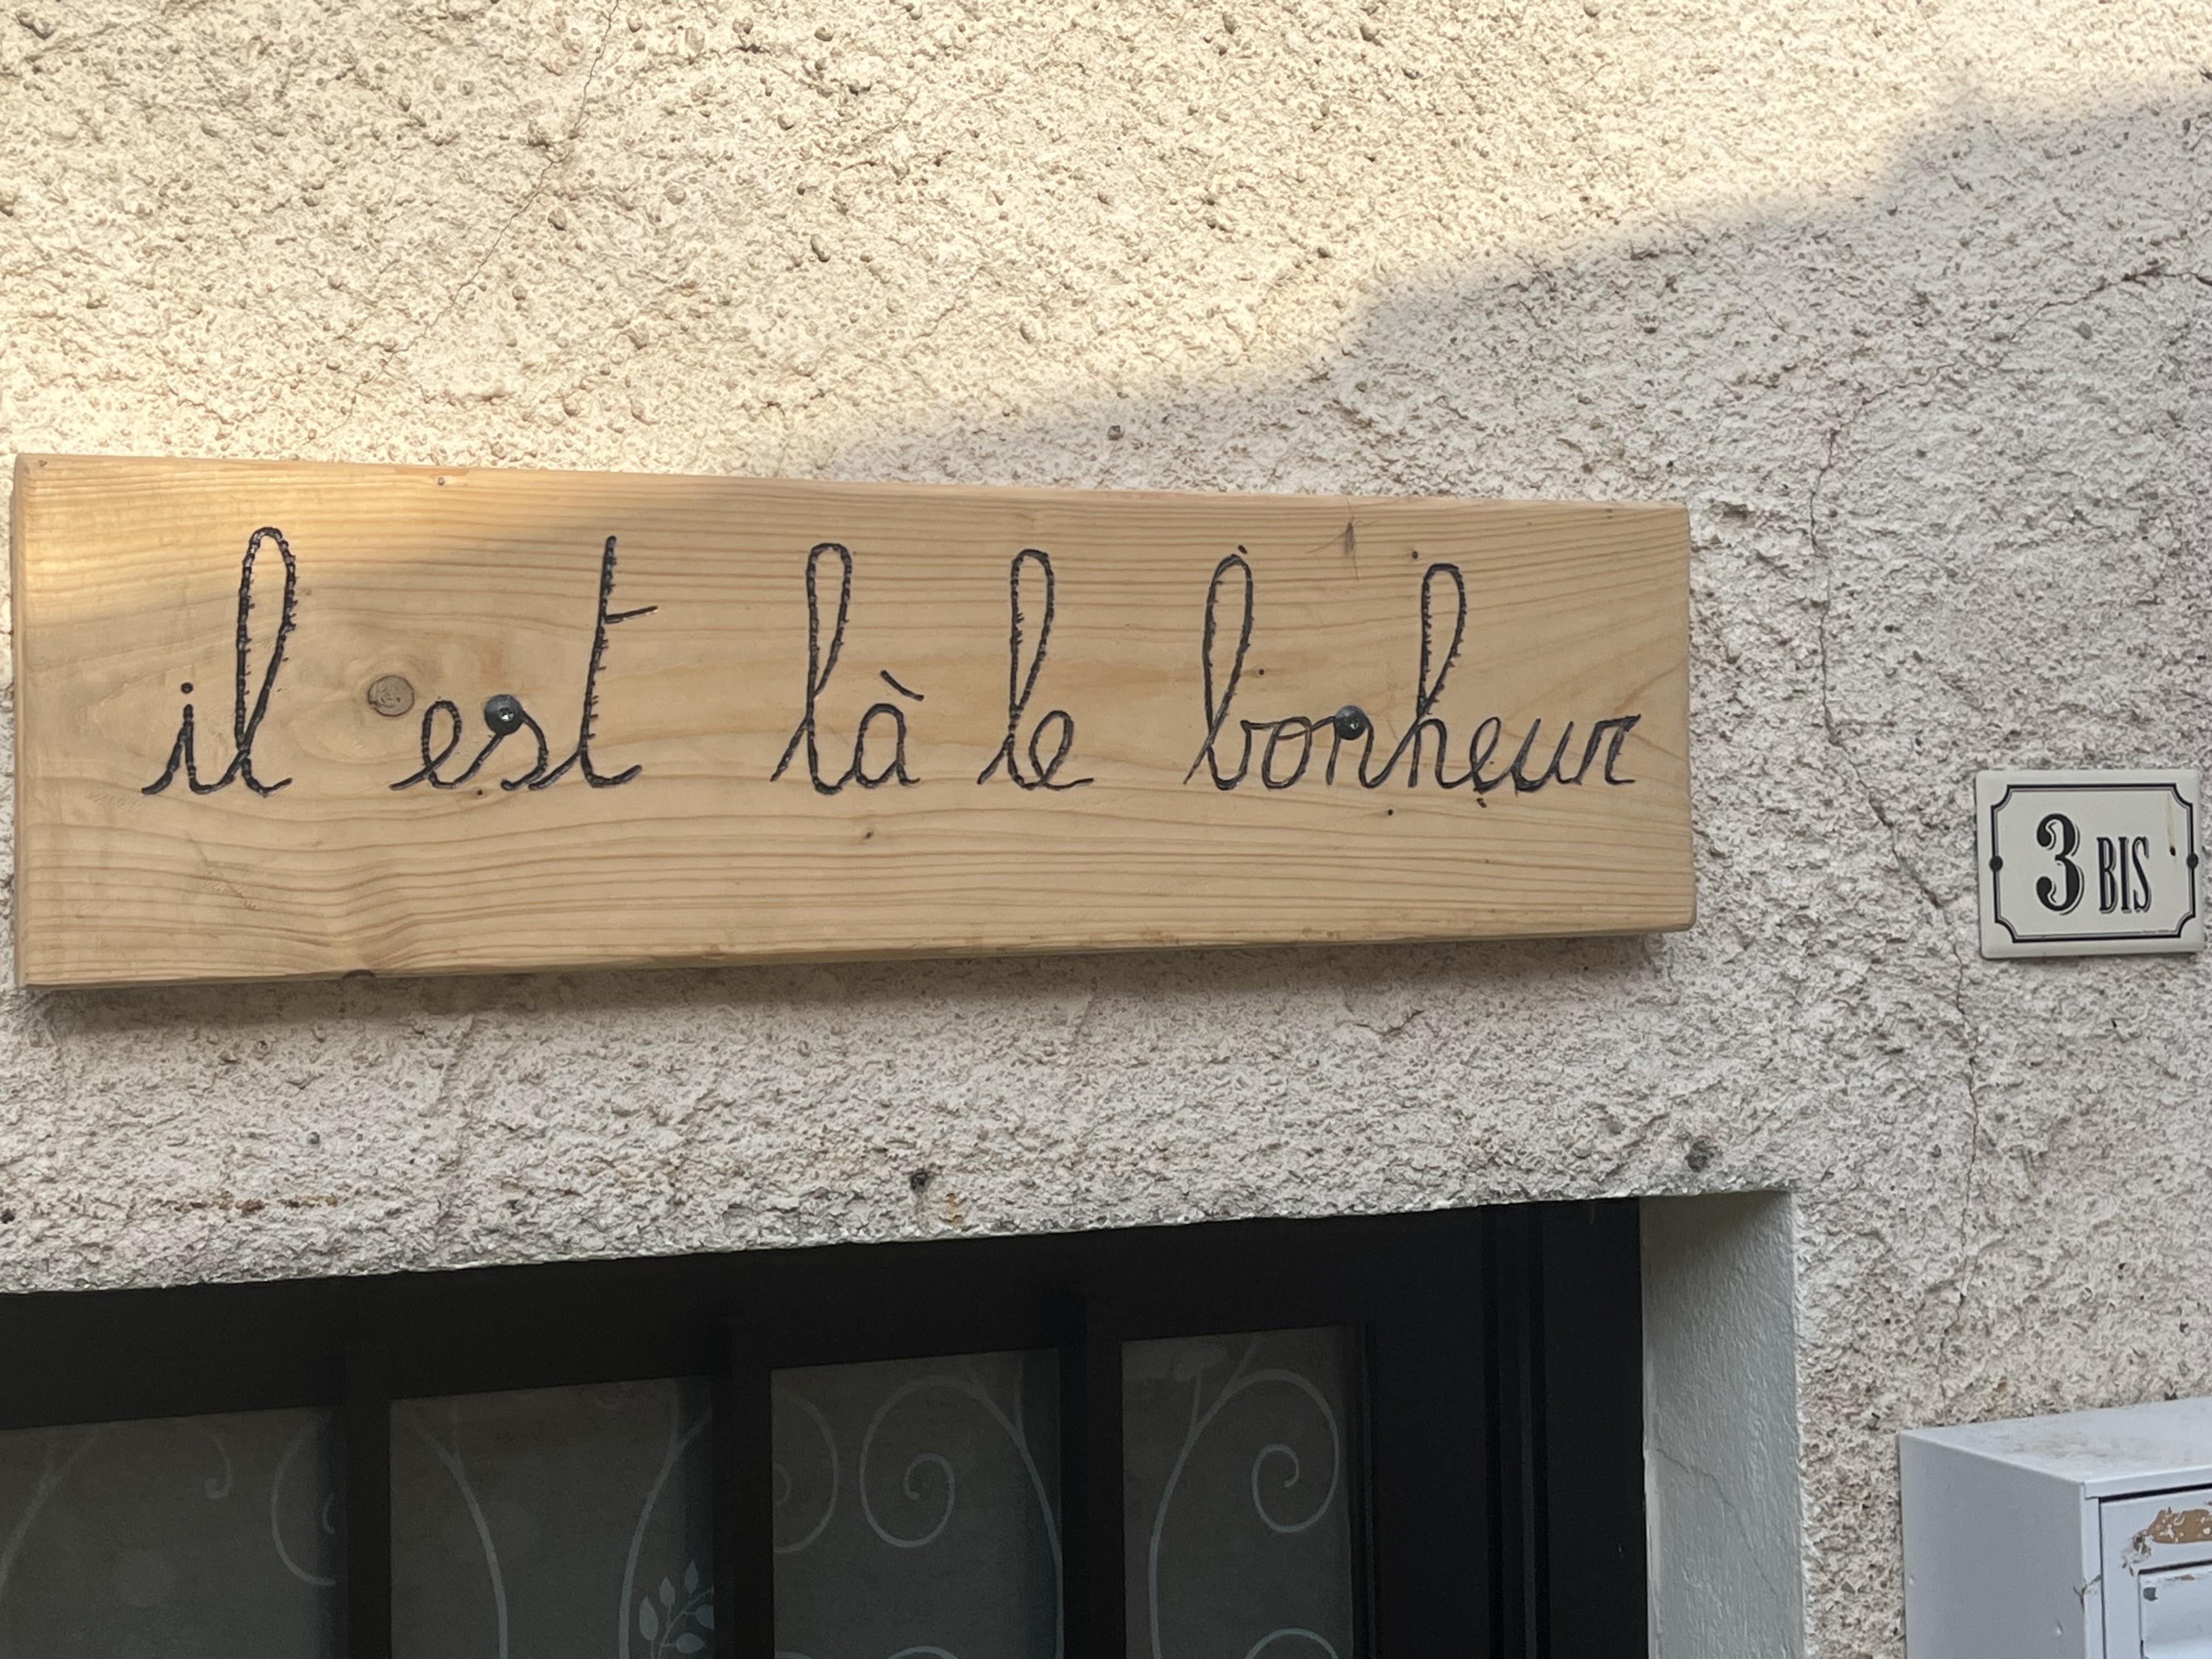 il est là le bonheur
3 BIS